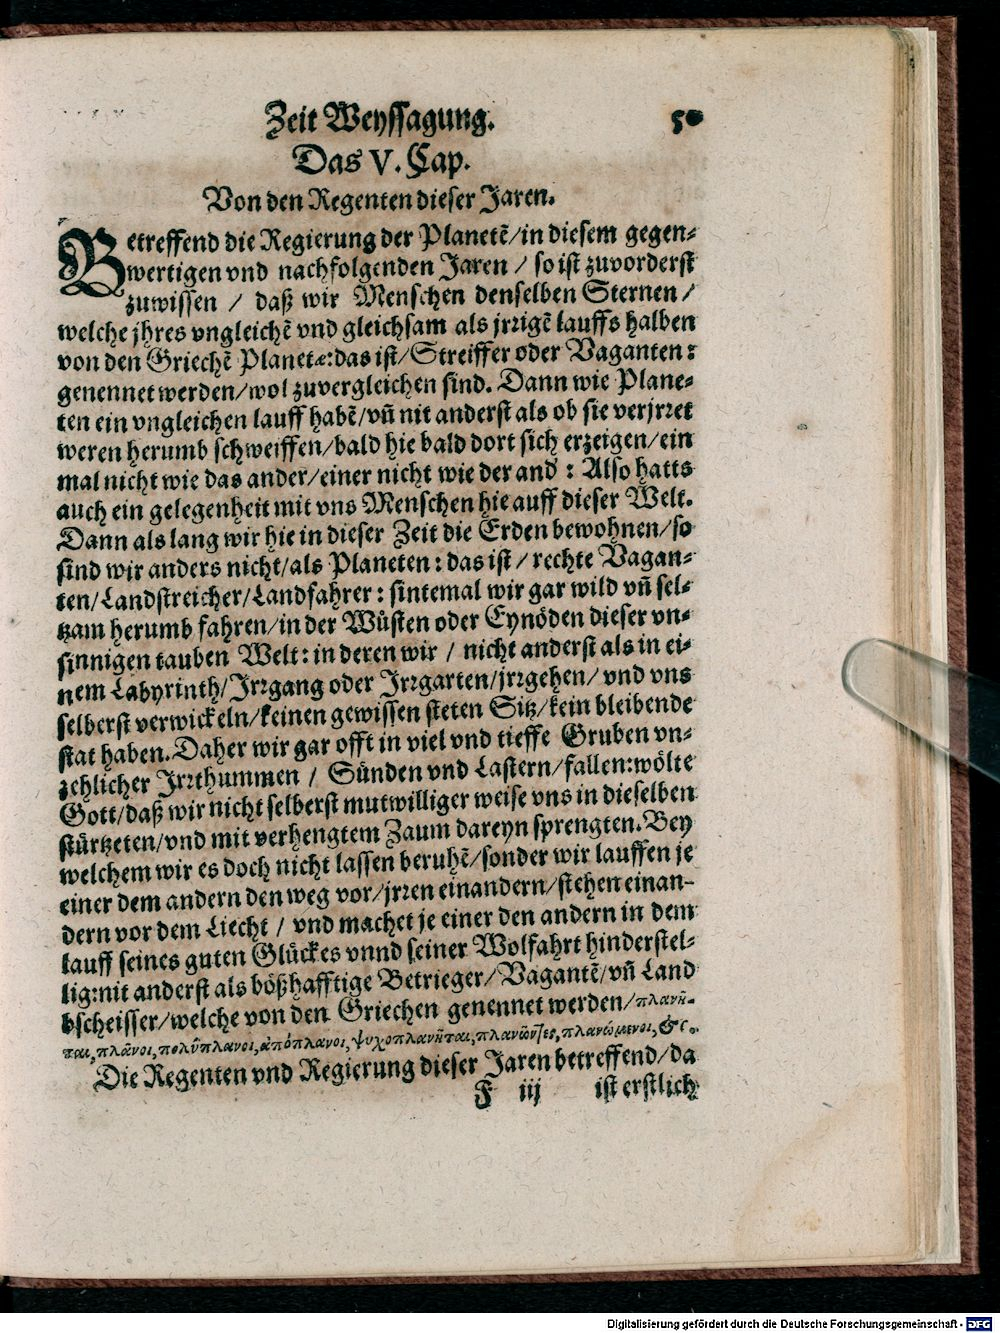 Zeit Weyssagung. 50
Das V. Cap.
Von den Regenten dieser Jaren.
Betreffend die Regierung der Planetẽ/in diesem gegen-
wertigen vnd nachfolgenden Jaren / so ist zuvorderst
zuwissen / daß wir Menschen denselben Sternen/
welche jhres vngleichẽ vnd gleichsam als jrrigẽ lauffs halben
von den Griechẽ Planetæ:das ist/Streiffer oder Vaganten:
genennet werden/wol zuvergleichen sind. Dann wie Plane-
ten ein vngleichen lauff habẽ/vñ nit anderst als ob sie verjrret
weren herumb schweiffen/bald hie bald dort sich erzeigen/ein
mal nicht wie das ander/einer nicht wie der and': Also hatts
auch ein gelegenheit mit vns Menschen hie auff dieser Welt.
Dann als lang wir hie in dieser Zeit die Erden bewohnen/so
sind wir anders nicht/als Planeten: das ist / rechte Vagan-
ten/Landstreicher/Landfahrer: sintemal wir gar wild vñ sel-
tzam herumb fahren/in der Wůsten oder Eynöden dieser vn-
sinnigen tauben Welt: in deren wir / nicht anderst als in ei-
nem Labyrinth/Irrgang oder Irrgarten/jrrgehen/ vnd vns
selberst verwickeln/keinen gewissen steten Sitz/kein bleibende
stat haben. Daher wir gar offt in viel vnd tieffe Gruben vn-
zehlicher Irrthummen / Sůnden vnd Lastern/fallen:wölte
Gott/daß wir nicht selberst mutwilliger weise vns in dieselben
stůrtzeten/vnd mit verhengtem Zaum dareyn sprengten. Bey
welchem wir es doch nicht lassen beruhẽ/sonder wir lauffen je
einer dem andern den weg vor/jrren einandern/stehen einan-
dern vor dem Liecht / vnd machet je einer den andern in dem
lauff seines guten Glůckes vnnd seiner Wolfahrt hinderstel-
lig:nit anderst als bößhafftige Betrieger/Vagantẽ/vñ Land
bscheisser/welche von den Griechen genennet werden/πλανῆ-
ται, πλᾶνοι, πολύπλανοι, ἀπόπλανοι, ψυχοπλανῆται, πλανῶντες, πλανώμενοι, &c.
Die Regenten vnd Regierung dieser Jaren betreffend/da
F iij ist erstlich
Digitalisierung gefördert durch die Deutsche Forschungsgemeinschaft - DFG